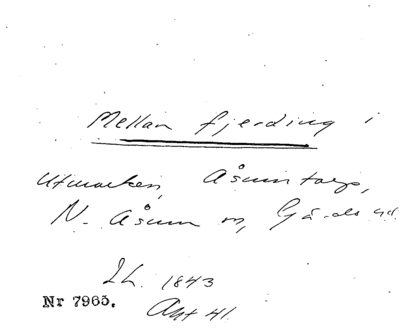 Mellan fjerding i
utmarken, Åsumtorp,
N. Åsum sn, Gä.ds hd.
LL. 1843
Nr 7965.
Akt 41.